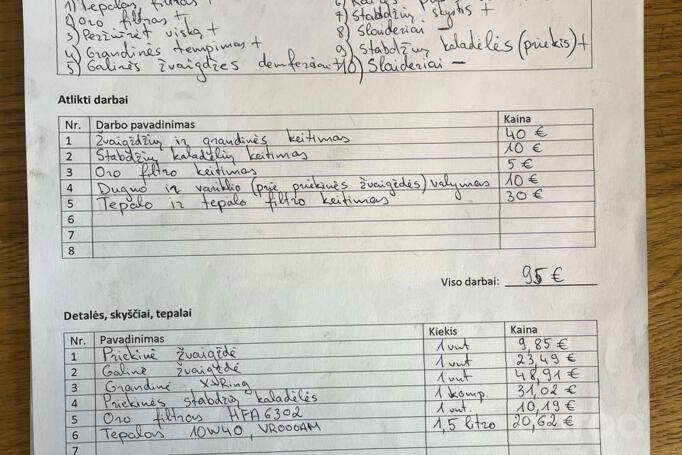 1) Tepalas, filtras +
2) Oro filtras +
3) Peržiūrėt viską +
4) Grandinės tempimas +
5) Galinės žvaigždės demferiai +
7) Stabdžių skystis +
8) Slaideriai -
9) Stabdžių kaladėlės (priekis) +
10) Slaideriai -
Atlikti darbai
Nr. Darbo pavadinimas Kaina
1 Žvaigždžių ir grandinės keitimas 40 €
2 Stabdžių kaladėlių keitimas 10 €
3 Oro filtro keitimas 5 €
4 Dugno ir variklio (prie priekinės žvaigždės) valymas 10 €
5 Tepalo ir tepalo filtro keitimas 30 €
6
7
8
Viso darbai: 95 €
Detalės, skyščiai, tepalai
Nr. Pavadinimas Kiekis Kaina
1 Priekinė žvaigždė 1 vnt 9,85 €
2 Galinė žvaigždė 1 vnt 23,49 €
3 Grandinė X-Ring 1 vnt 48,91 €
4 Priekinės stabdžių kaladėlės 1 komp. 31,02 €
5 Oro filtras HFA6302 1 vnt. 10,19 €
6 Tepalas 10W40, VROOOAM 1,5 litro 20,62 €
7